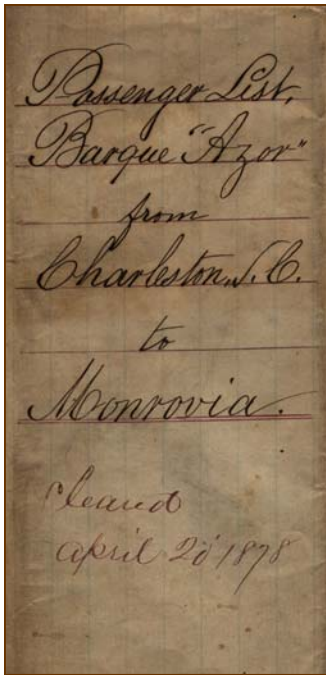 Passenger List,
Barque "Azor"
from
Charleston, S.C.
to
Monrovia.
Cleared
April 20 1878